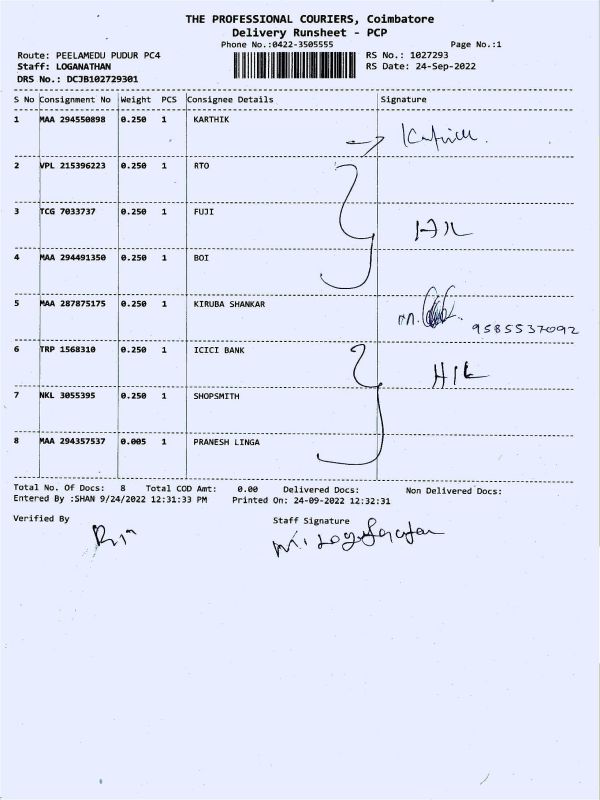 THE PROFESSIONAL COURIERS, Coimbatore
Delivery Runsheet - PCP
Phone No.:0422-3505555 Page No.:1
Route: PEELAMEDU PUDUR PC4 RS No.: 1027293
Staff: LOGANATHAN RS Date: 24-Sep-2022
DRS No.: DCJB102729301
S No Consignment No Weight PCS Consignee Details Signature
1 MAA 294550898 0.250 1 KARTHIK
2 VPL 215396223 0.250 1 RTO
3 TCG 7033737 0.250 1 FUJI
4 MAA 294491350 0.250 1 BOI
5 MAA 287875175 0.250 1 KIRUBA SHANKAR
9585537092
6 TRP 1568310 0.250 1 ICICI BANK
7 NKL 3055395 0.250 1 SHOPSMITH
8 MAA 294357537 0.005 1 PRANESH LINGA
Total No. Of Docs: 8 Total COD Amt: 0.00 Delivered Docs: Non Delivered Docs:
Entered By :SHAN 9/24/2022 12:31:33 PM Printed On: 24-09-2022 12:32:31
Verified By Staff Signature